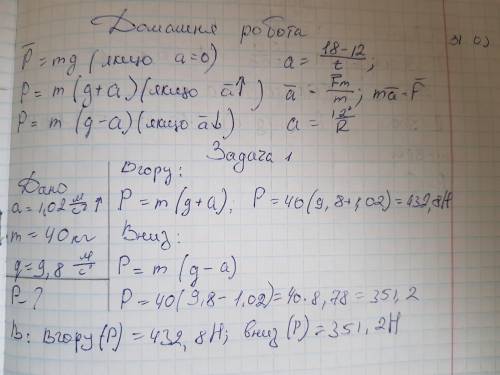 Домашня робота
P̅ = mg (якщо a=0)
P = m (g+a) (якщо a̅↑)
P = m (g-a) (якщо a̅↓)
a = 18-12 / t ;
a̅ = F̅m / m ; ma̅ = F̅
Задача 1
Дано
a=1,02 м/с² ↑
m = 40 кг
g=9,8 м/с²
P - ?
Вгору:
P = m (g+a), P = 40(9,8+1,02)=432,8Н
Вниз:
P = m (g-a)
P = 40(9,8-1,02)=40·8,78=351,2
В: Вгору(P) = 432,8Н; вниз(P)=351,2Н